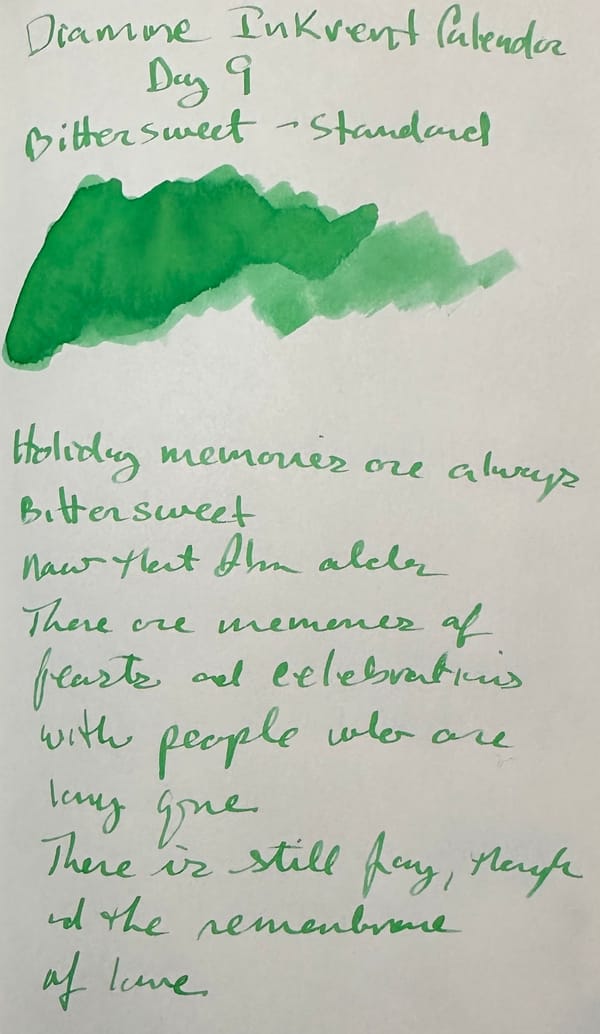 Diamine InkVent Calendar
Day 9
Bittersweet - Standard
Holiday memories are always
Bittersweet
Now that I am older
There are memories of
feasts and celebrations
with people who are
long gone
There is still joy, though
and the remembrance
of love